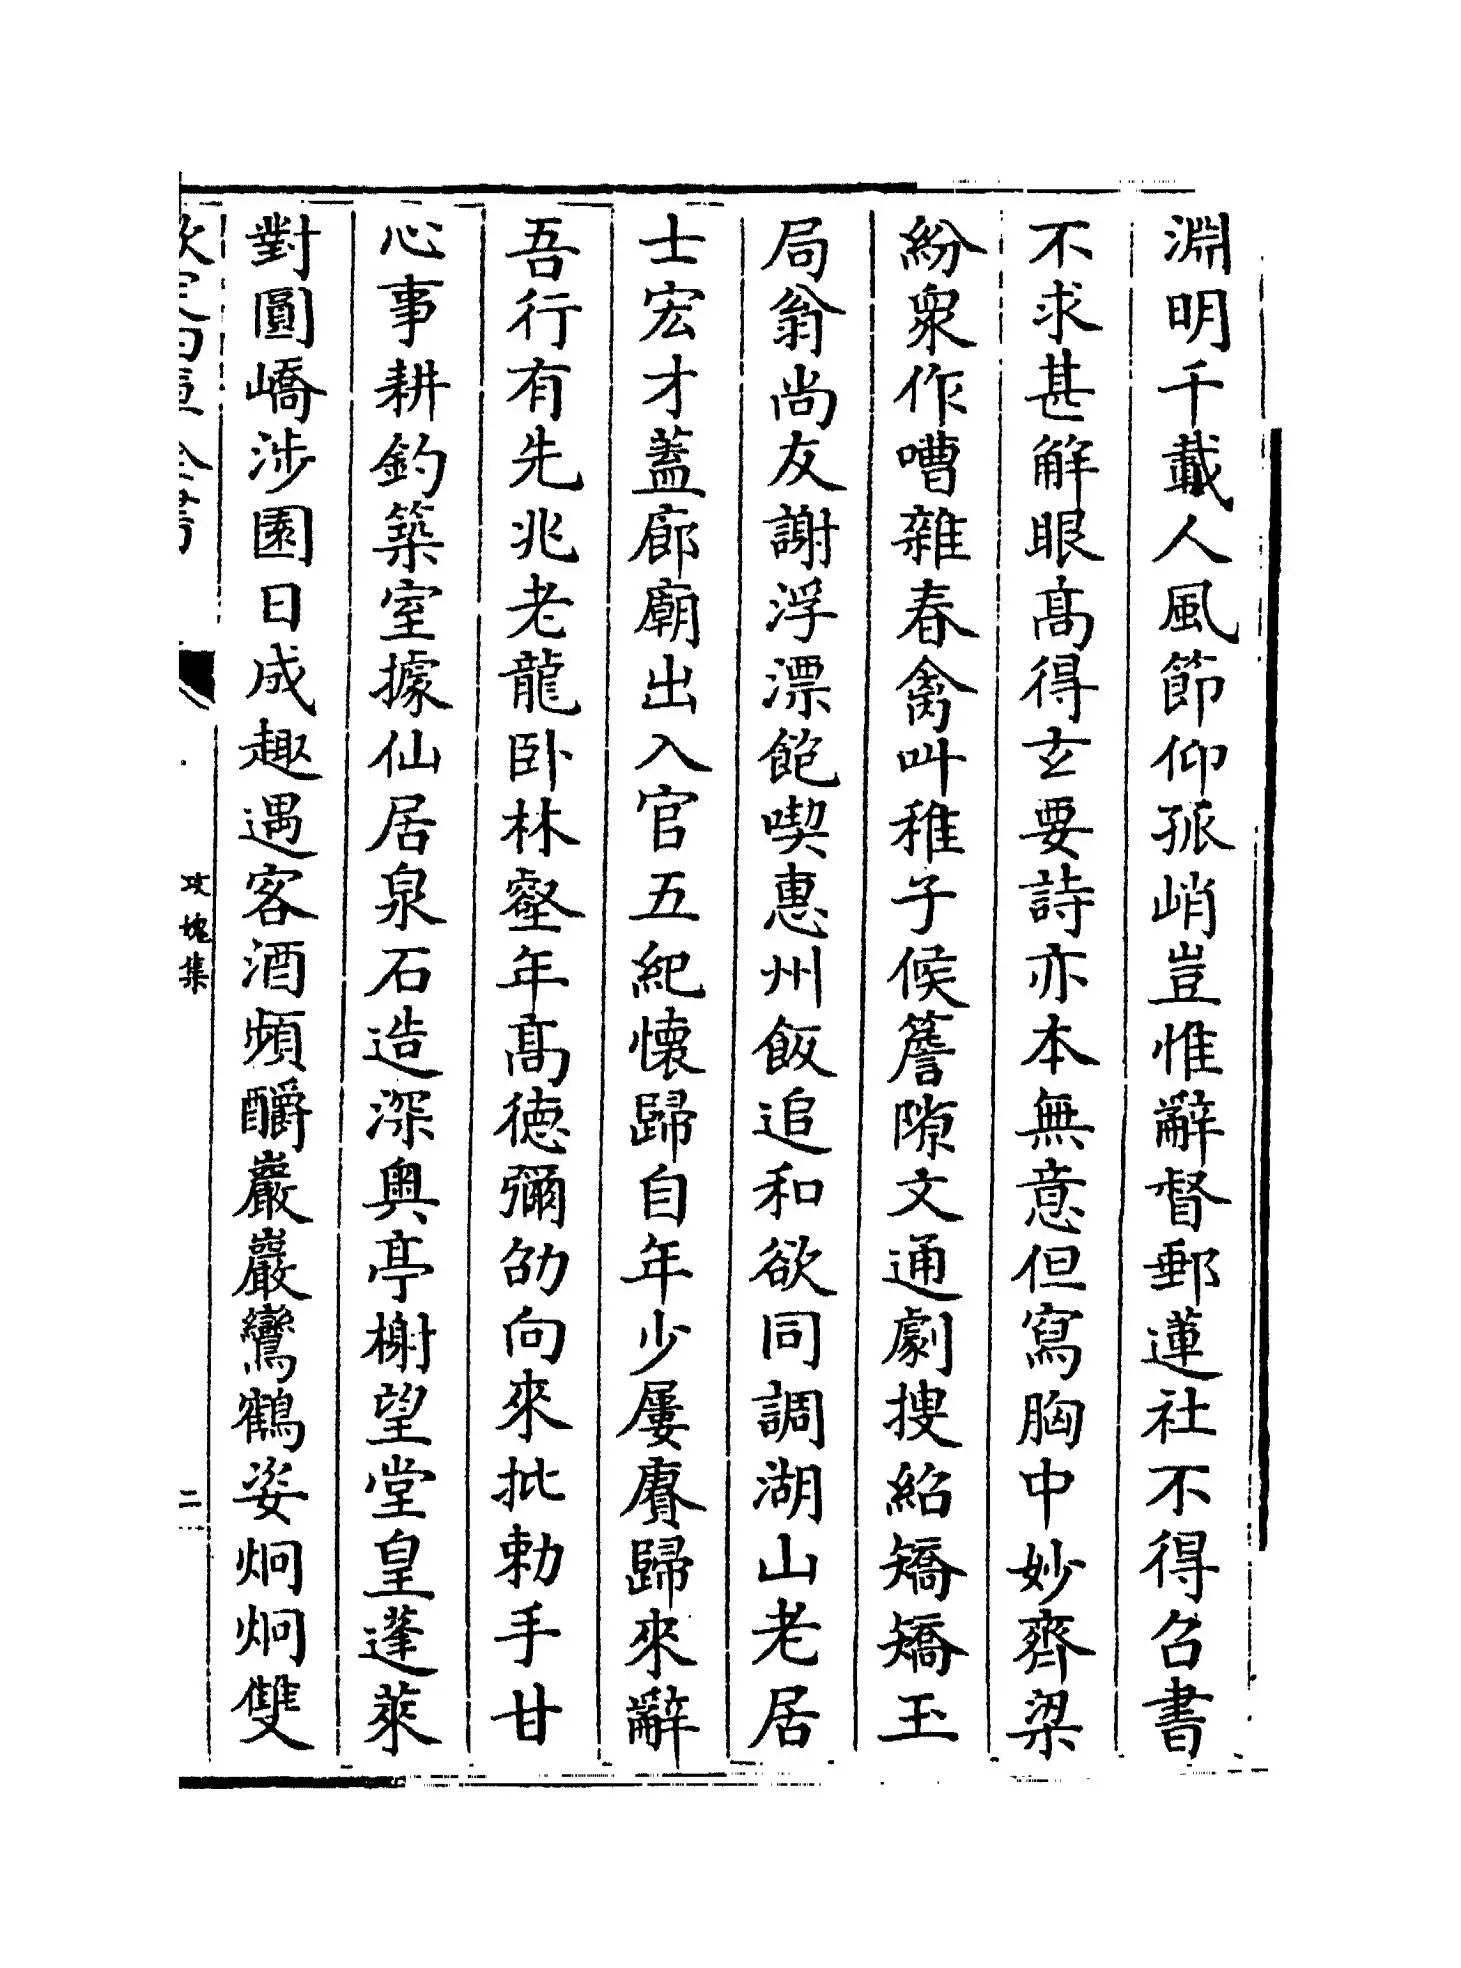 淵明千載人風節仰孤峭豈惟辭督郵蓮社不得召書
不求甚解眼髙得玄要詩亦本無意但寫胸中妙齊梁
紛衆作嘈雜春禽叫稚子候簷隙文通劇搜紹矯矯玉
局翁尚友謝浮漂飽喫惠州飯追和欲同調湖山老居
士宏才蓋廊廟出入官五紀懐歸自年少屢賡歸來辭
吾行有先兆老龍卧林壑年髙徳彌劭向來批勅手甘
心事耕釣築室據仙居泉石造深奥亭榭望堂皇蓬萊
對圓嶠涉園日成趣遇客酒頻釂巖巖鸞鶴姿炯炯雙
欽定四庫全書
攻媿集
二